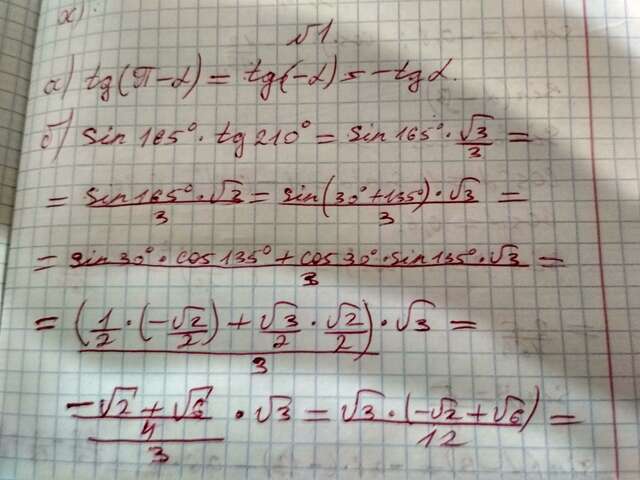 x).
№1.
а) tg(π-α) = tg(-α) = -tgα.
б) sin 165° · tg 210° = sin 165° · √3/3 =
= sin 165° · √3/3 = sin(30° + 135°) · √3/3 =
= sin 30° · cos 135° + cos 30° · sin 135° · √3/3 =
= (1/2 · (-√2/2) + √3/2 · √2/2) · √3/3 =
-√2 + √6/4/3 · √3 = √3 · (-√2 + √6)/12 =